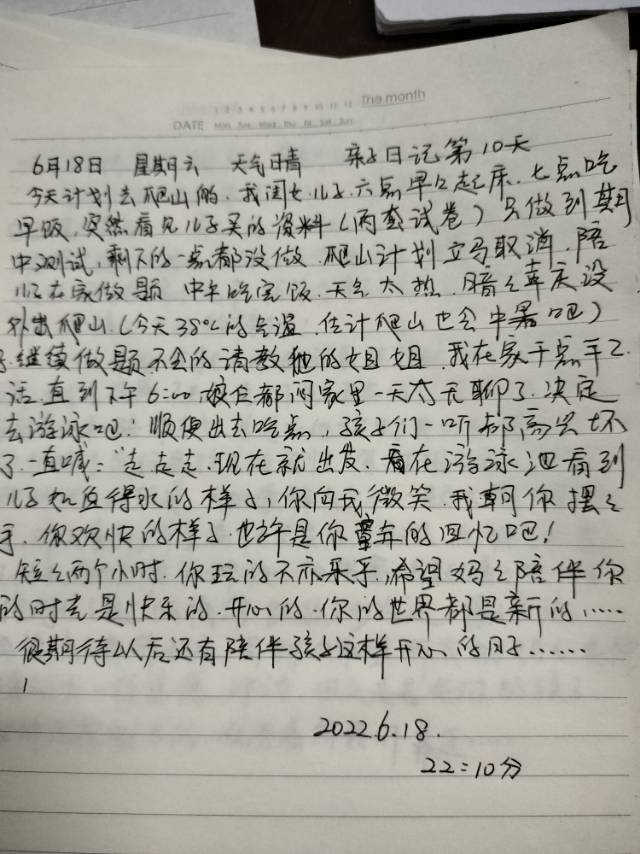 1 2 3 4 5 6 7 8 9 10 11 12 The month
DATE Mon Tue Wed Thu Fri Sat Sun
6月18日 星期六 天气晴 亲子日记第10天
今天计划去爬山的,我闺女儿子六点早早起床,七点吃
早饭,突然看见儿子买的资料(两套试卷)只做到期
中测试,剩下的一点都没做,爬山计划立马取消,陪
儿子在家做题 中午吃完饭,天气太热,暗々幸庆没
外出爬山(今天38℃的高温 估计爬山也会中暑吧)
继续做题不会的请教他的姐姐,我在家干点手工
活,直到下午6:00娘仨都闷家里一天太无聊了,决定
去游泳吧!顺便出去吃点,孩子们一听都高兴坏
了一直喊:“走走走,现在就出发,看在游泳池看到
儿子如鱼得水的样子,你向我微笑,我朝你摆々
手,你欢快的样子,也许是你童年的回忆吧!
短々两个小时,你玩的不亦乐乎,希望妈々陪伴你
的时光是快乐的,开心的,你的世界都是新的.....
很期待以后还有陪伴孩子这样开心的日子......
2022.6.18.
22:10分